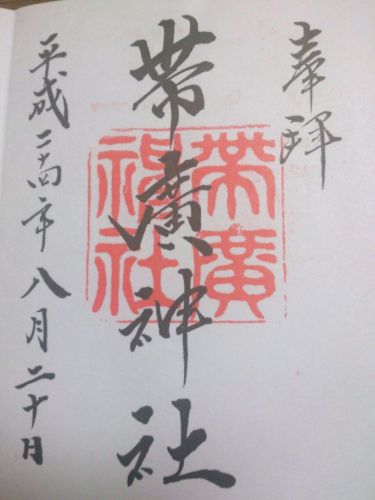 奉拝
帯廣神社
帯廣
神社
平成二十四年八月二十日